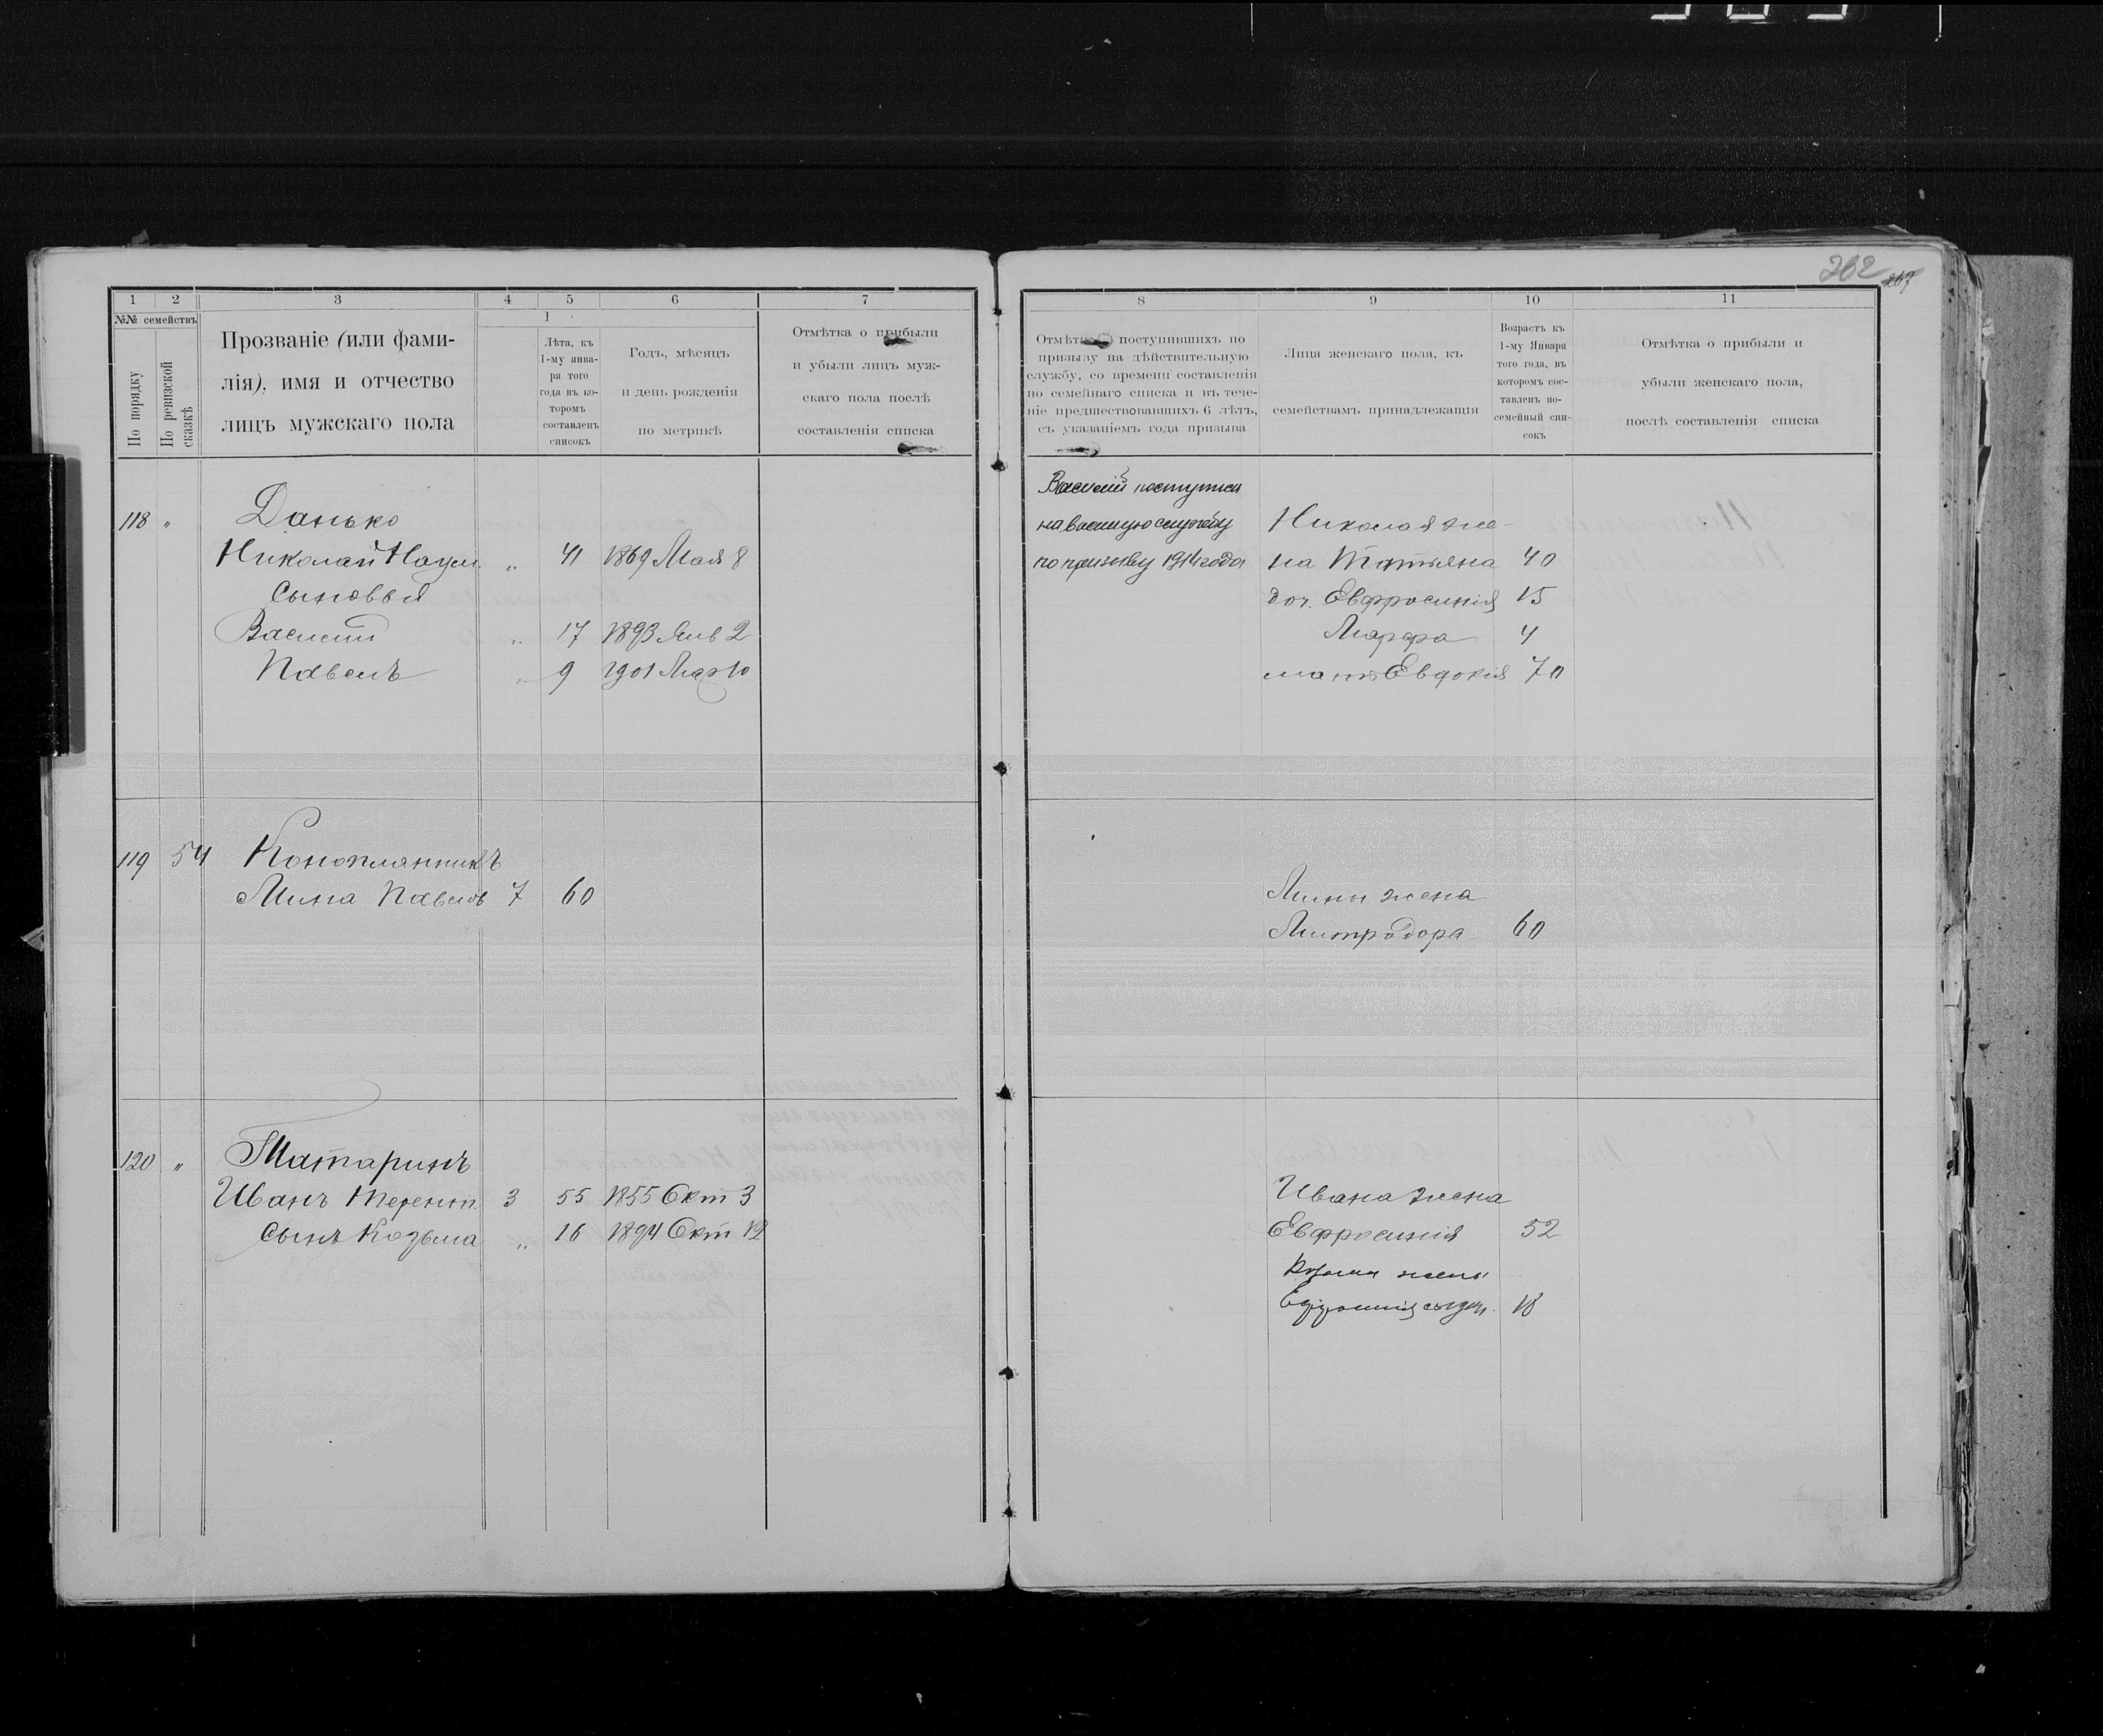 262 267
1 2 3 4 5 6 7
№№ семействъ
По порядку
По ревизской сказкѣ
Прозваніе (или фами-
лія), имя и отчество
лицъ мужскаго пола
Лѣта, къ
1-му янва-
ря того
года въ ко-
торомъ
составленъ
списокъ
Годъ, мѣсяцъ
и день рожденія
по метрикѣ
Отмѣтка о прибыли
и убыли лицъ муж-
скаго пола послѣ
составленія списка
118 " Данько
Николай Наум. " 41 1869 Мая 8
Сыновья
Василій " 17 1893 Янв 2
Павелъ " 9 1901 Мар 10
119 54 Коноплянникъ
Мина Павлов 7 60
120 " Татаринъ
Иванъ Терент. 3 55 1855 Окт 3
Сынъ Козьма " 16 1894 Окт 12
8 9 10 11
поступившихъ по
призыву на дѣйствительную
службу, со времени составленія
по семейнаго списка и въ тече-
ніе предшествовавшихъ 6 лѣтъ,
съ указаніемъ года призыва
Лица женскаго пола, къ
семействамъ принадлежащія
Возрастъ къ
1-му Января
того года, въ
которомъ сос-
тавленъ по-
семейный спи-
сокъ
Отмѣтка о прибыли и
убыли женскаго пола,
послѣ составленія списка
Василій поступил
на военную службу
по призыву 1914 года
Николая же-
на Татьяна 40
доч. Евфросинія 15
Марфа 4
мать Евдокія 70
Мины жена
Митродора 60
Ивана жена
Евфросинія 52
Козьмы жена
18